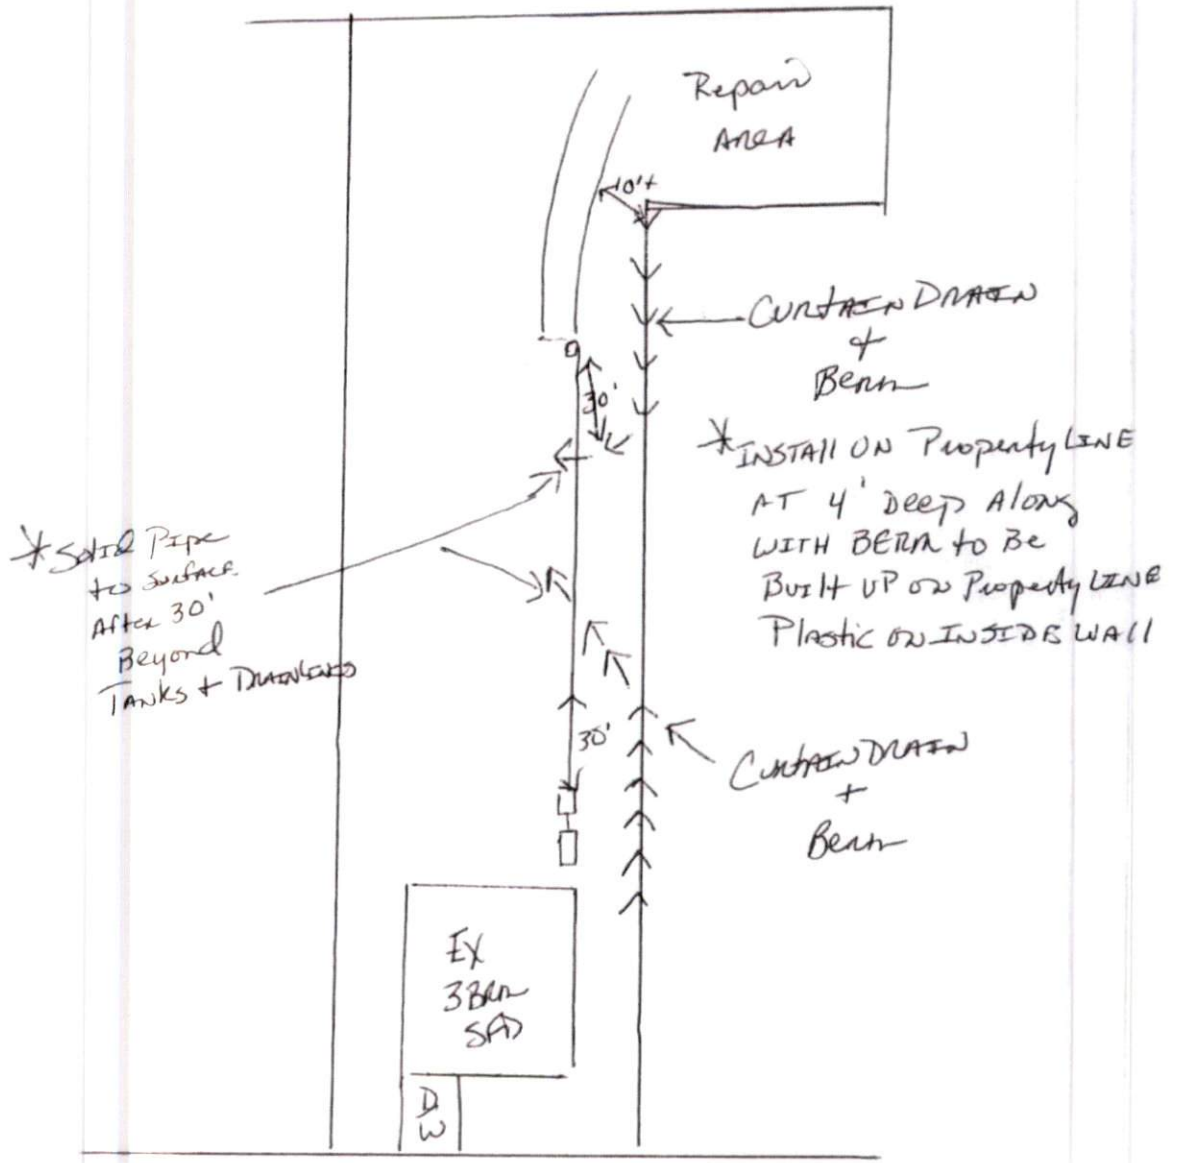 Repair
Area
10'+
Curtain Drain
+
Berm
30'
* Install on Property Line
at 4' Deep Along
with Berm to Be
Built up on Property Line
Plastic on Inside Wall
* Solid Pipe
to Surface
After 30'
Beyond
Tanks + Drainlines
30'
Curtain Drain
+
Berm
Ex
3BRM
SFD
DW